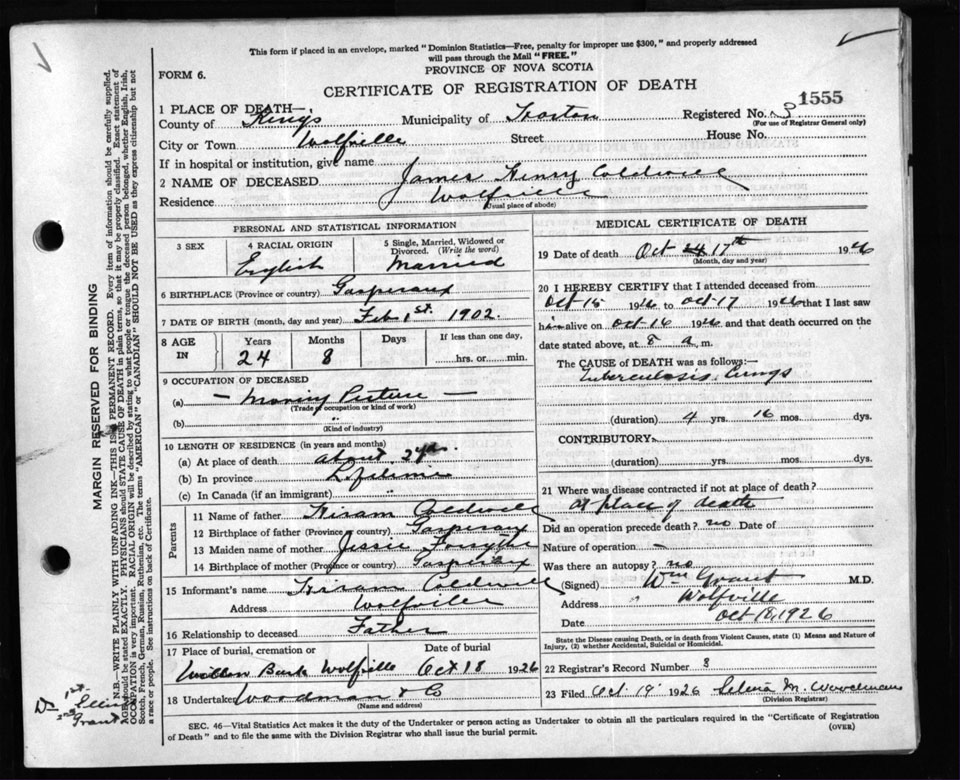 This form if placed in an envelope, marked "Dominion Statistics—Free, penalty for improper use $300," and properly addressed
will pass through the Mail "FREE."
FORM 6.
PROVINCE OF NOVA SCOTIA
CERTIFICATE OF REGISTRATION OF DEATH
1 PLACE OF DEATH—
County of Kings Municipality of Horton Registered No. 1555
(For use of Registrar General only)
City or Town Wolfville Street House No.
If in hospital or institution, give name
2 NAME OF DECEASED James Henry Coldwell
Residence Wolfville
(Usual place of abode)
PERSONAL AND STATISTICAL INFORMATION
3 SEX
4 RACIAL ORIGIN
English
5 Single, Married, Widowed or Divorced. (Write the word)
Married
6 BIRTHPLACE (Province or country) Gaspereaux
7 DATE OF BIRTH (month, day and year) Feb 1st. 1902.
8 AGE IN
Years Months Days If less than one day,
24 8 hrs. or min.
9 OCCUPATION OF DECEASED
(a) — Moving Picture —
(Trade of occupation or kind of work)
(b) "
(Kind of industry)
10 LENGTH OF RESIDENCE (in years and months)
(a) At place of death about yrs.
(b) In province Lifetime
(c) In Canada (if an immigrant) "
Parents
11 Name of father Hiram Coldwell
12 Birthplace of father (Province or country) Gaspereaux
13 Maiden name of mother Jessie Forsythe
14 Birthplace of mother (Province or country) Gaspereaux
15 Informant's name Hiram Coldwell
Address Wolfville
16 Relationship to deceased Father
17 Place of burial, cremation or
Willow Bank Wolfville Oct 18 1926
18 Undertaker Woodman & Co
(Name and address)
MEDICAL CERTIFICATE OF DEATH
19 Date of death Oct 17th 1926
(Month, day and year)
20 I HEREBY CERTIFY that I attended deceased from
Oct 15 1926 to Oct 17 1926 that I last saw
him alive on Oct 16 1926 and that death occurred on the
date stated above, at 8 a. m.
The CAUSE OF DEATH was as follows:—
Tuberculosis Lungs
(duration) 4 yrs. 16 mos. dys.
CONTRIBUTORY
(duration) yrs. mos. dys.
21 Where was disease contracted if not at place of death?
At place of death
Did an operation precede death? no Date of
Nature of operation —
Was there an autopsy? no
(Signed) Wm Grant M.D.
Address Wolfville
Date Oct 18, 1926
State the Disease causing Death, or in death from Violent Causes, state (1) Means and Nature of
Injury, (2) whether Accidental, Suicidal or Homicidal.
22 Registrar's Record Number 8
23 Filed Oct 19 1926 M
(Division Registrar)
SEC. 46—Vital Statistics Act makes it the duty of the Undertaker or person acting as Undertaker to obtain all the particulars required in the "Certificate of Registration
of Death" and to file the same with the Division Registrar who shall issue the burial permit.
(OVER)
MARGIN RESERVED FOR BINDING
N.B.—WRITE PLAINLY WITH UNFADING INK—THIS IS A PERMANENT RECORD. Every item of information should be carefully supplied.
AGE should be stated EXACTLY. PHYSICIANS should STATE CAUSE OF DEATH in plain terms, so that it may be properly classified. Exact statement of
OCCUPATION is very important. RACIAL ORIGIN will be described by stating to what people or tongue the deceased person belonged, whether English, Irish,
Scotch, French, German, Russian, Ruthenian, etc. The terms "AMERICAN" or "CANADIAN" SHOULD NOT BE USED as they express citizenship but not
a race or people. See instructions on back of Certificate.
Dr. 1st.
2nd Grant